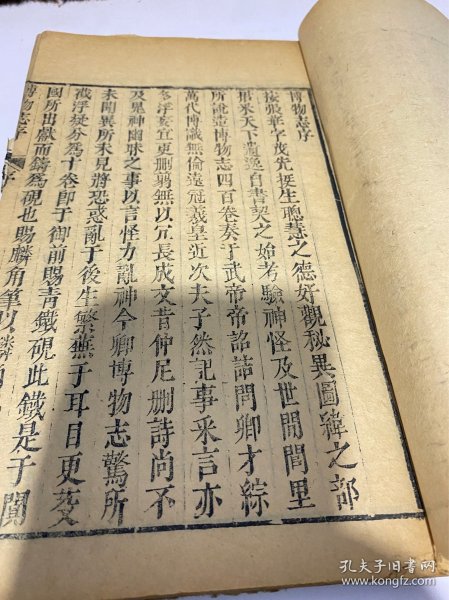 博物志序
按張華字茂先挺生聰慧之德好觀秘異圖緯之部
捃采天下遺逸自書契之始考驗神怪及世間閭里
所說造博物志四百卷奏于武帝帝詔詰問卿才綜
萬代博識無倫遠冠羲皇近次夫子然記事采言亦
多浮妄宜更刪翦無以冗長成文昔仲尼刪詩尚不
及鬼神幽昧之事以言怪力亂神今卿博物志驚所
未聞異所未見將恐惑亂于後生繁蕪于耳目更芟
截浮疑分爲十卷即于御前賜青鐵硯此鐵是于闐
國所出獻而鑄爲硯也賜麟角筆以麟
博物志序
孔夫子旧书网
www.kongfz.com